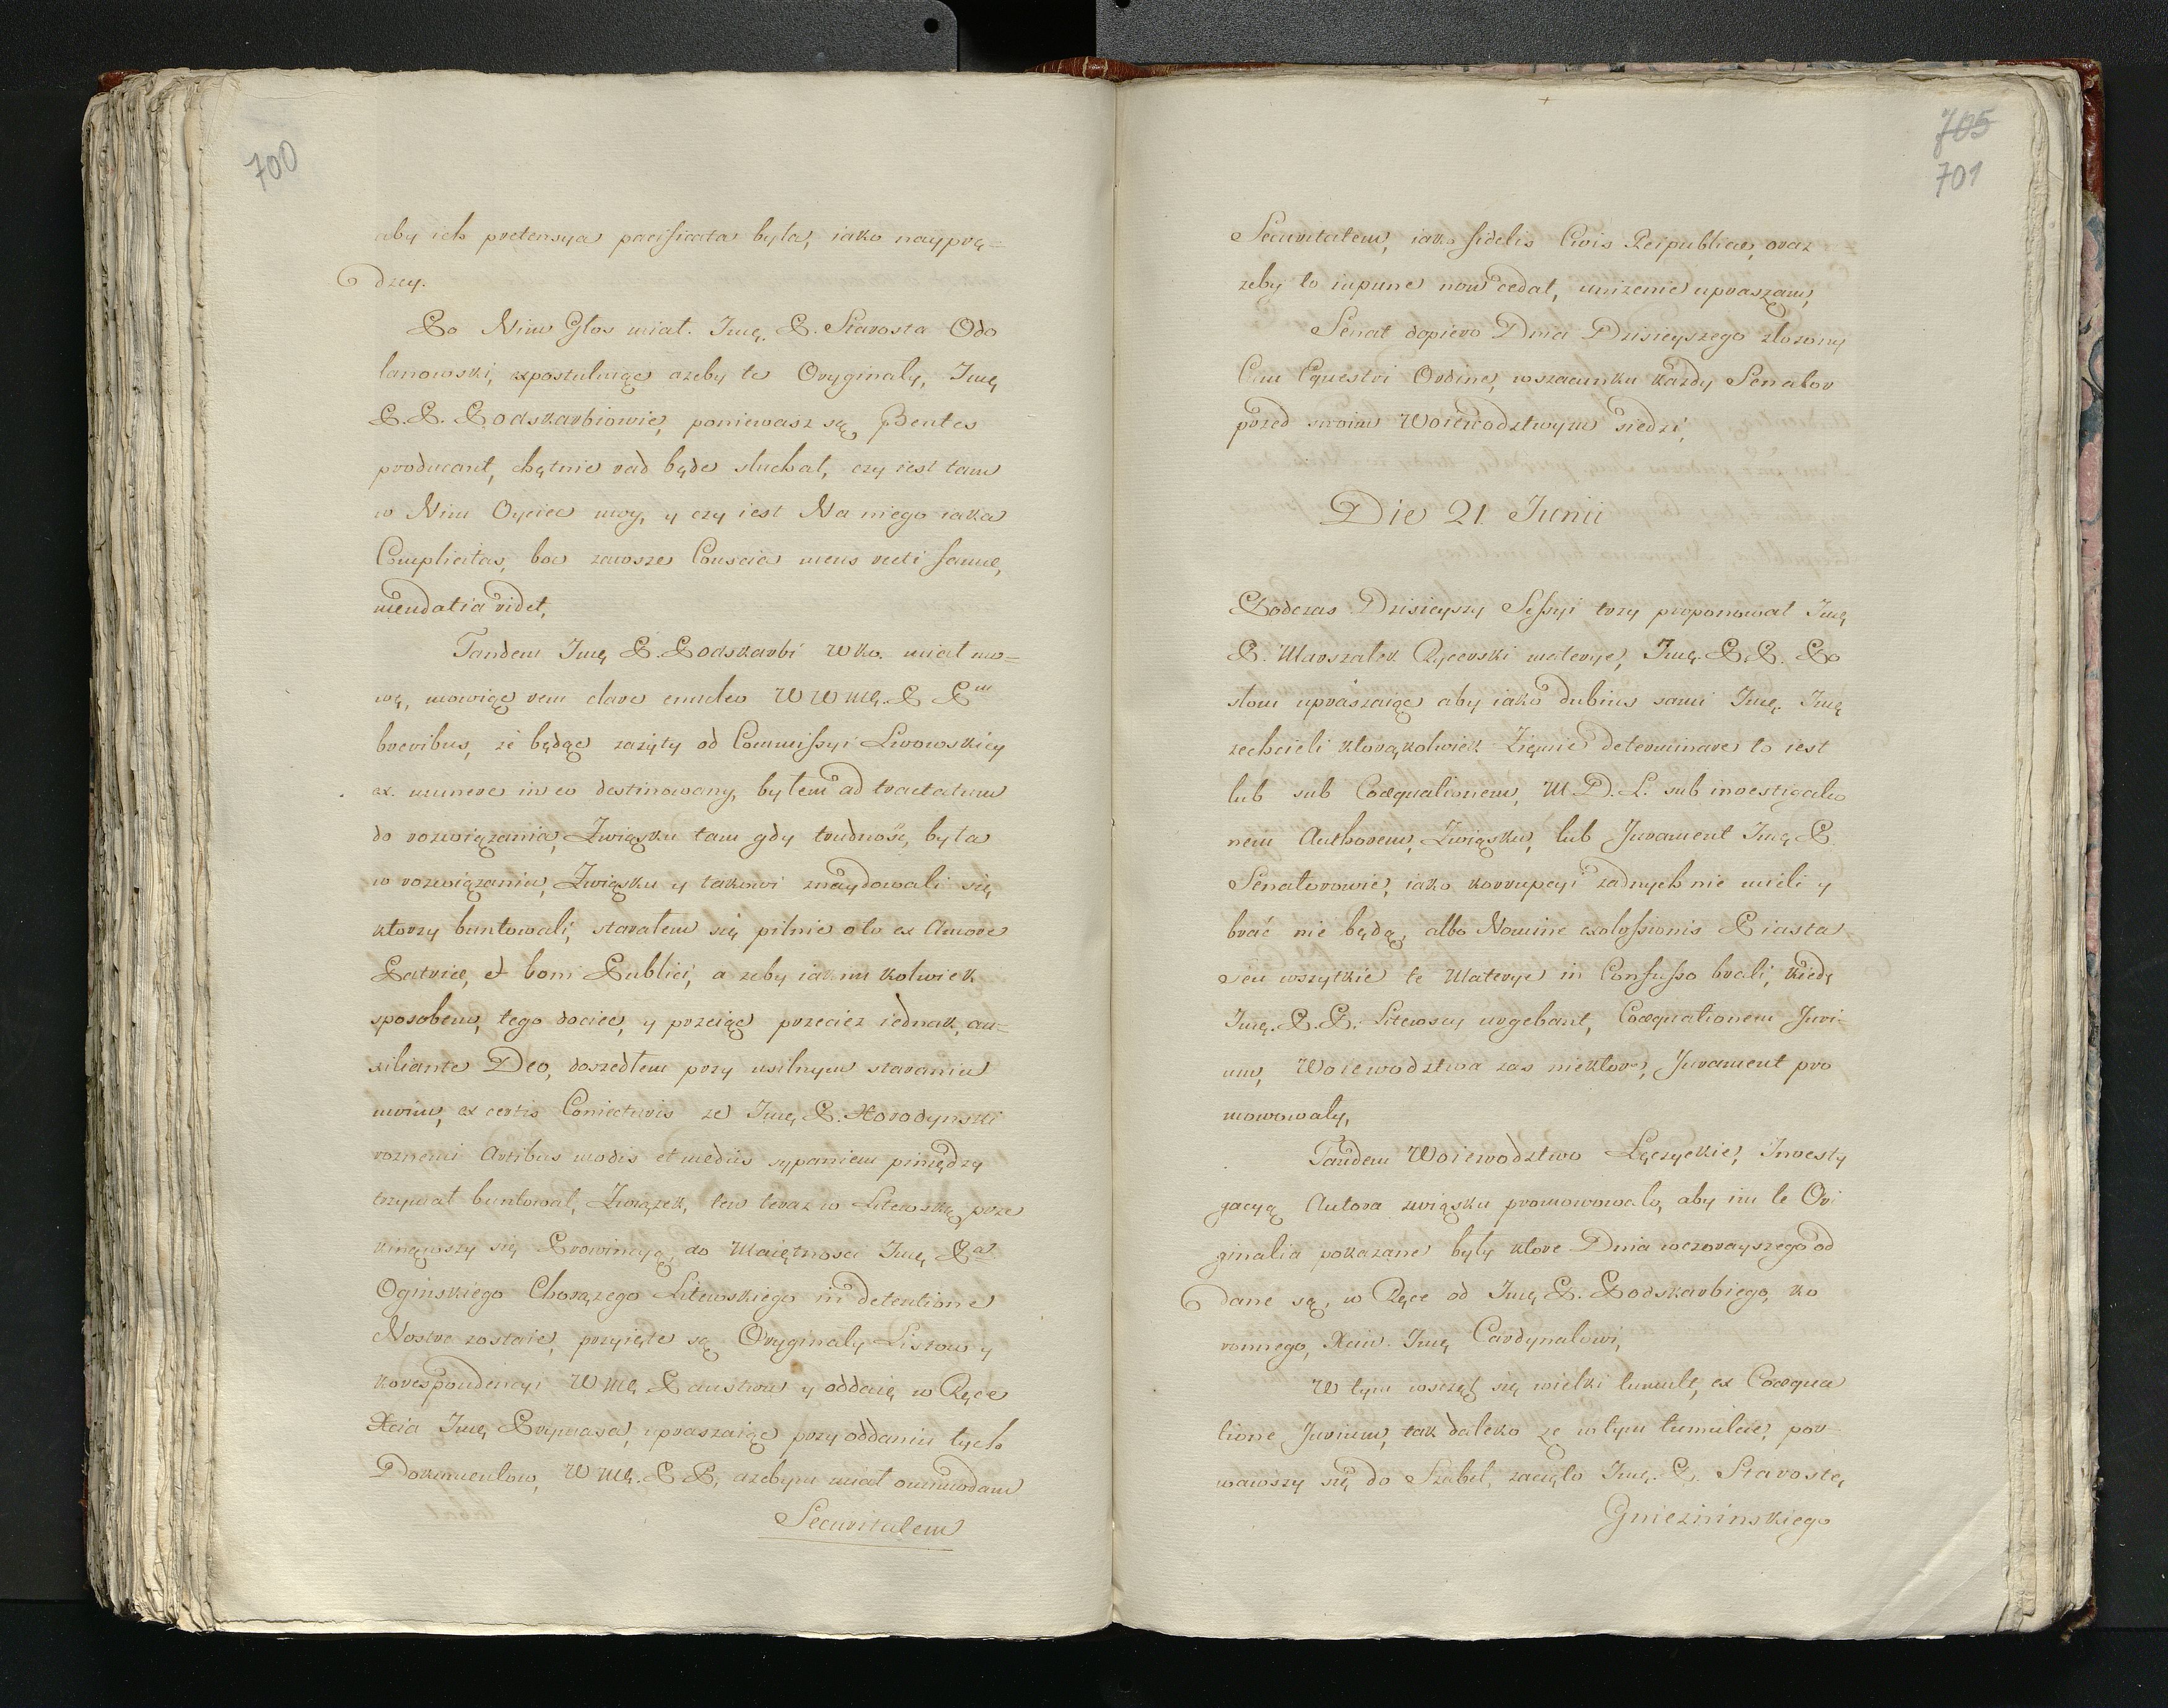 700
aby ich pretensya pacificata była, iako nayprę=
dzey.
Po Nim Głos miał. Jmę. P. Starosta Odo
lanowski, expostuluiąc azeby te Oryginały, Jmę
P.P. Podskarbiowie, poniewasz są, Bentes
producant, chętnie rad będe słuchał, czy iest tam
w Nim Oyciec moy, y czy iest Na niego iaka
Complicitas, boć zawsze Conscia mens recti famæ,
mendatia ridet,
Tandem Jmę P. Podskarbi WKo. miał mo=
wę, mowiąc rem clare enucleo WWMę. P Pm
brevibus, że będąc zażyty od Commissyi Lwowskiey
ex munere in eo destinowany, byłem ad tractatum
do rozwiązania, Związku tam gdy trudność, była
w rozwiązaniu, Związku y takowi znaydowali się
ktorzy buntowali, starałem się pilnie o to ex Amore
Patriæ, et boni Publici, a zeby iakim kolwiek
sposobem, tego dociec, y przeiąc przeciez iednak, au=
xiliante Deo, doszedłem przy usilnym staraniu
moim, ex certis Coniecturis że Jmę P. Horodynski
roznemi Artibus modis et mediis sypaniem piniędzy
trzymał buntował, Związek, ten teraz w Litewską prze
kinąwszy się Prowincyą, do Maiętnosci Jmę Pa
Oginskiego Chorązego Litewskiego in detentione
Nostra zostaie, przyięte są Oryginały Listow y
korespondencyi WMę Panstwu y oddaię w Ręce
Xcia Jmę Prymasa, upraszaiąc przy oddaniu tych
Dokumentow, WMę. P P, azebym miał omnimodam
Securitatem
705
701
Securitatem, iako fidelis Civis Reipublicæ, oraz
zeby to inpune non cedat, unizenie upraszam,
Senat dopiero Dnia Dzisieyszego złozony
Cum Equestri Ordine, w szacunku kazdy Senator
przed swoim Woiewodztwym siedzi,
Die 21 Junii
Podczas Dzisieyszy Sessyi trzy proponował Jmę
P. Marszałek Rycerski materye, Jmę. P.P. Po
słow upraszaiąc aby iako dubius sami Jmę. Jmę
zechcieli ktorąkolwiek Ziemie determinare to iest
lub sub Coæqualionem, M D. L. sub investigatio
nem Authorem, Związku, lub Jurament Jmę P.
Senatorowie, iako korrupcyi zadnych nie mieli y
brać nie będą, albo Nomine exclossionis Piasta
seu wszytkie te Materye in Confusso brali, kiedy
Jmę. P.P. Litewscy urgebant, Coæquationem Juri-
um, Woiewodztwa zas niektore, Jurament pro
mowowały,
Tandem Woiewodztwo Łęczyckie, Investy
gacyą Autora związku promowowało, aby im te Ori
ginalia pokazane były ktore Dnia wczorayszego od
dane są, w Ręce od Jmę P. Podskarbiego, ko
ronnego, Xciu Jmę Cardynałowi,
W tym wszczął się wielki tumult, ex Coæqua
tione Jurium, tak daleko ze w tym tumulcie, por
wawszy się do Szabel, zacięto Jmę. P. Starostę,
Gnieznińskiego